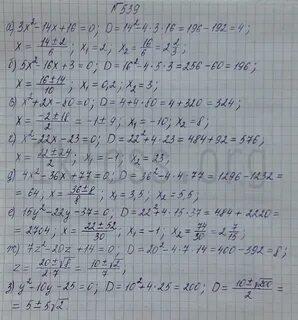 № 539
а) 3x² - 14x + 16 = 0; D = 14² - 4·3·16 = 196 - 192 = 4;
x = (14 ± 2)/6; x₁ = 2, x₂ = 16/6 = 2 2/3;
б) 5x² - 16x + 3 = 0; D = 16² - 4·5·3 = 256 - 60 = 196;
x = (16 ± 14)/10; x₁ = 0,2; x₂ = 3;
в) x² + 2x - 80 = 0; D = 4 + 4·80 = 4 + 320 = 324;
x = (-2 ± 18)/2 = -1 ± 9; x₁ = -10; x₂ = 8;
г) x² - 22x - 23 = 0; D = 22² + 4·23 = 484 + 92 = 576;
x = (22 ± 24)/2; x₁ = -1; x₂ = 23;
д) 4x² - 36x + 77 = 0; D = 36² - 4·4·77 = 1296 - 1232 =
= 64, x = (36 ± 8)/8; x₁ = 3,5; x₂ = 5,5;
е) 15y² - 22y - 37 = 0; D = 22² + 4·15·37 = 484 + 2220 =
= 2704; x = (22 ± 52)/30; x₁ = -1; x₂ = 74/30 = 2 7/15;
ж) 7z² - 20z + 14 = 0; D = 20² - 4·7·14 = 400 - 392 = 8;
z = (20 ± √8)/(2·7) = (10 ± √2)/7;
з) y² - 10y - 25 = 0; D = 10² + 4·25 = 200; D = (10 ± √200)/2 =
= 5 ± 5√2